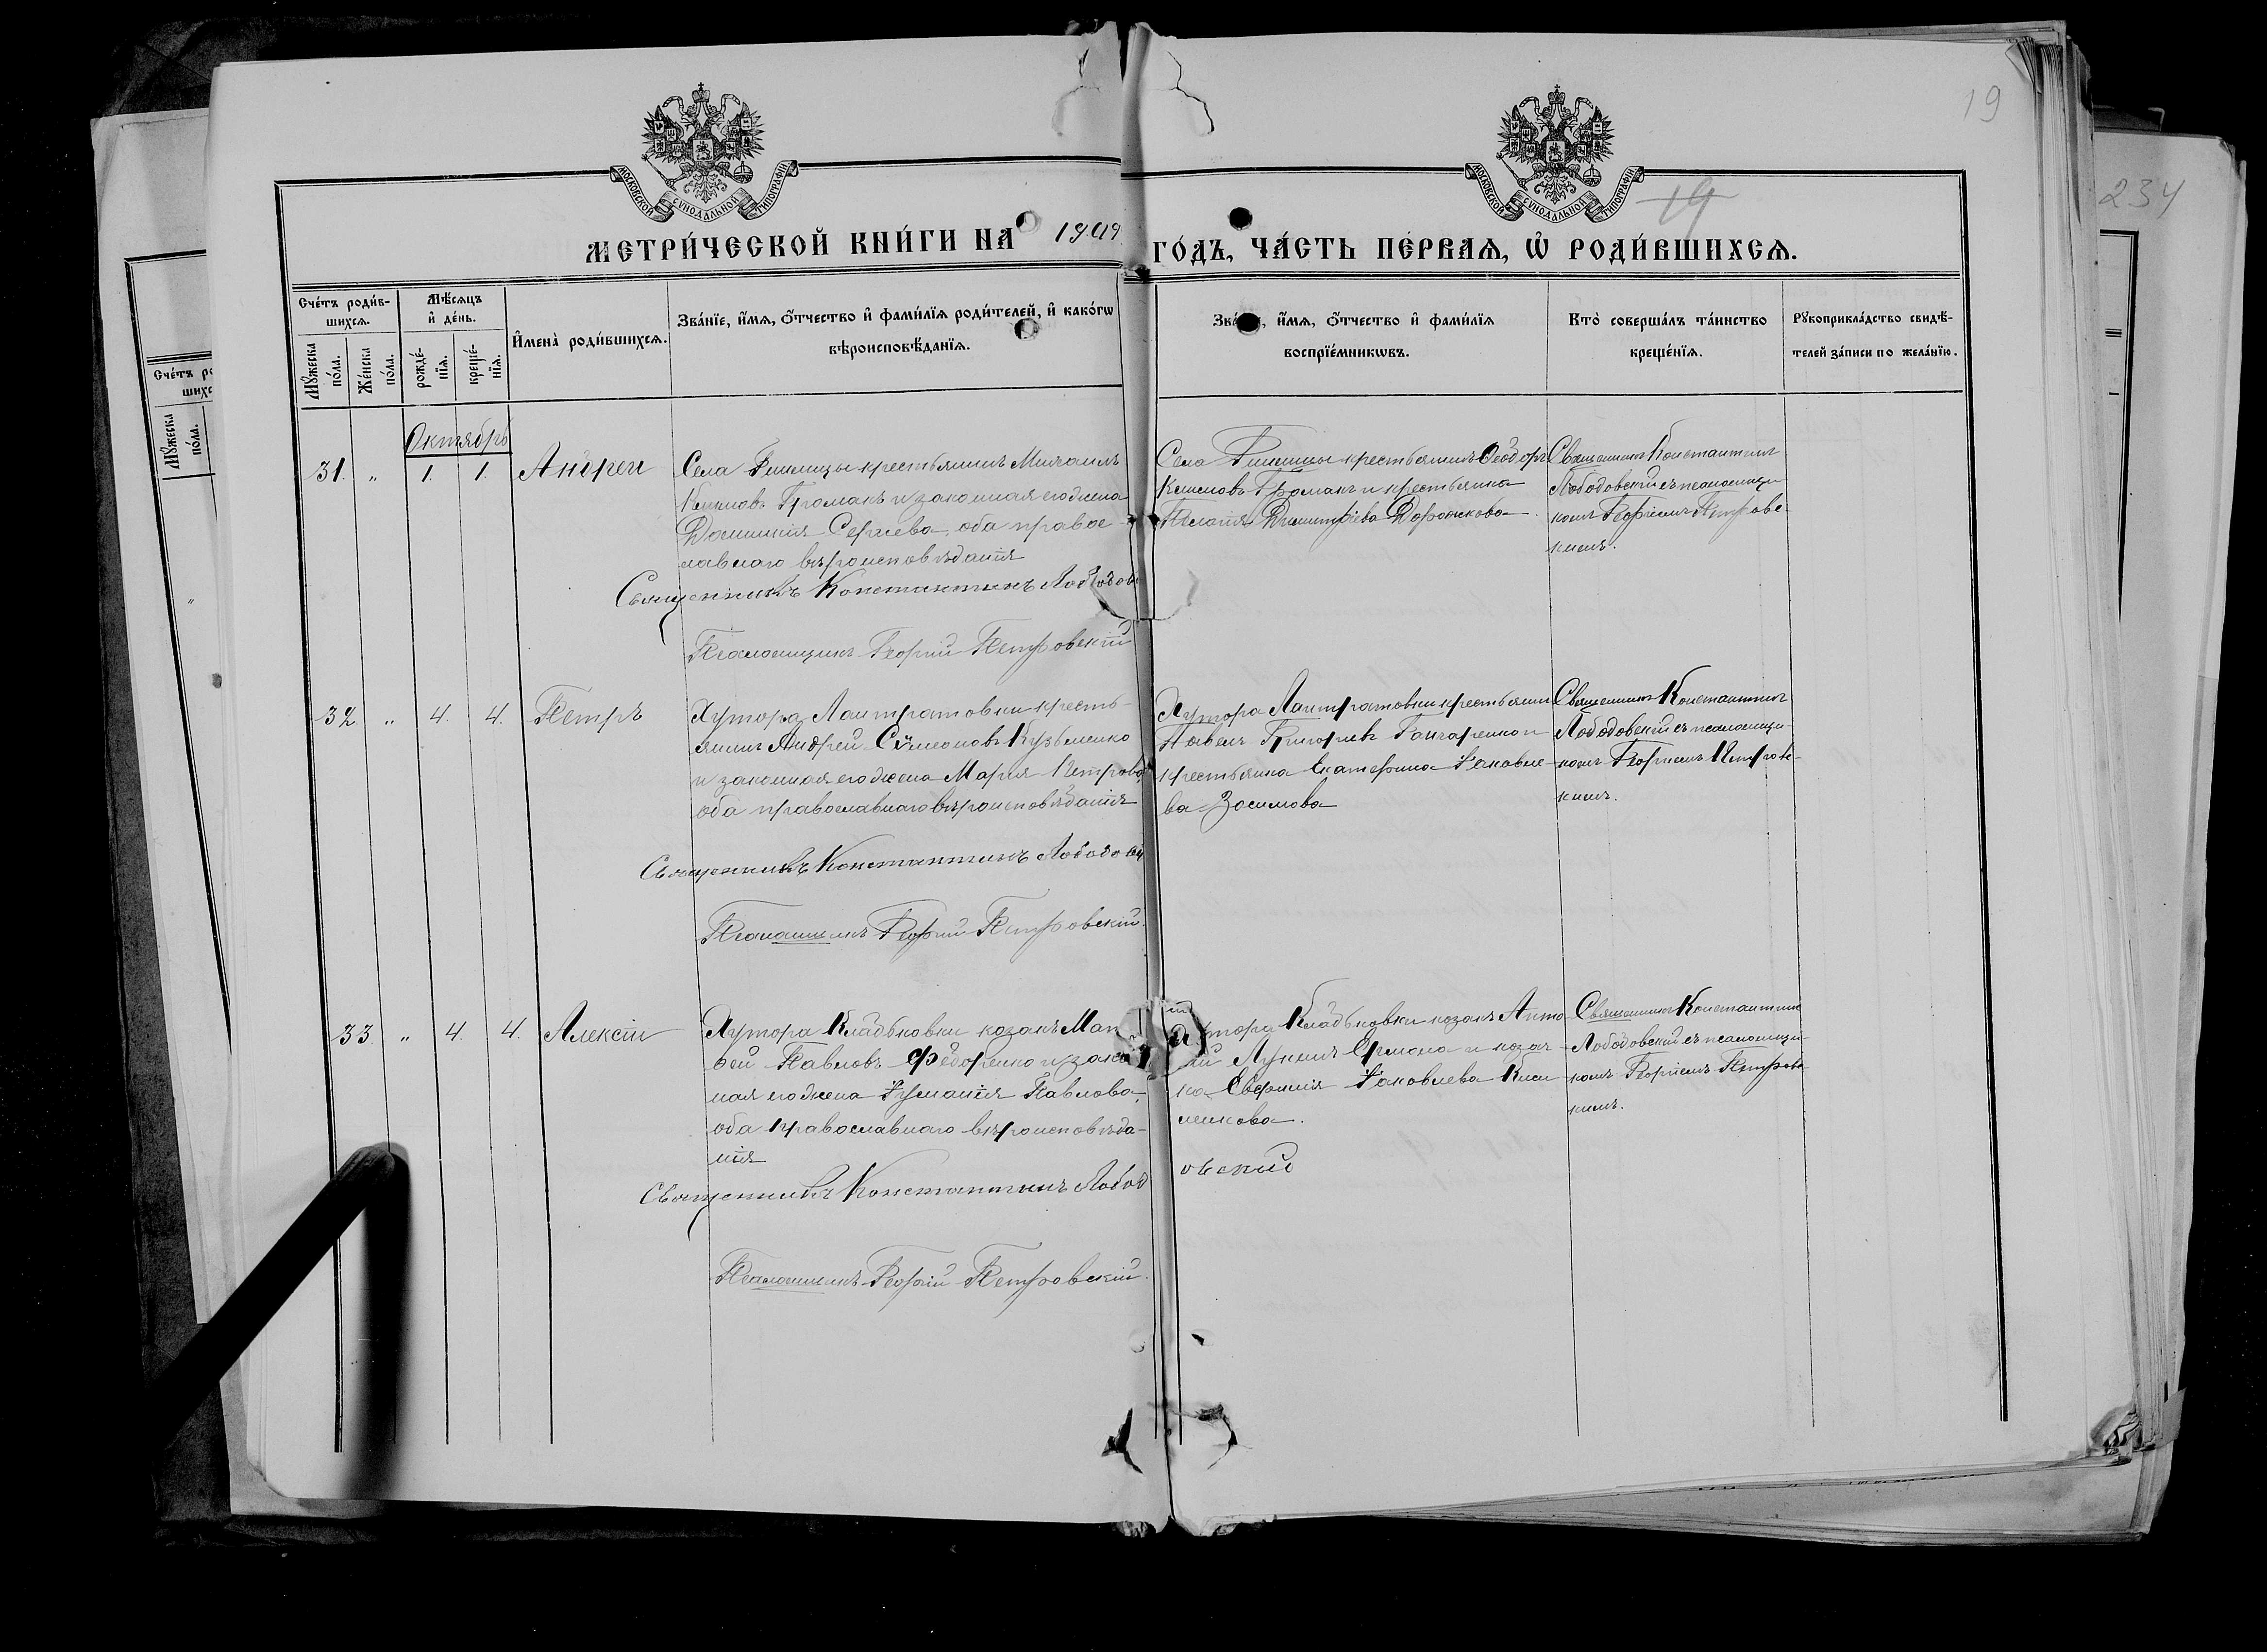 19
19
234
МОСКОВСКОЙ СѴНОДАЛЬНОЙ ТИПОГРАФІИ
МОСКОВСКОЙ СѴНОДАЛЬНОЙ ТИПОГРАФІИ
МЕТРИ́ЧЕСКОЙ КНИ́ГИ НА 1909 ГО́ДЪ, ЧА́СТЬ ПЕ́РВАѦ, Ѽ РОДИ́ВШИХСѦ.
Сче́тъ роди́в-
шихсѧ.
Мꙋ́жеска по́ла.
Же́нска по́ла.
Мѣ́сѧцъ
и҆ де́нь.
рожде́-
нїѧ.
креще́-
нїѧ.
И҆мена̀ роди́вшихсѧ.
Зва́нїе, и҆́мѧ, ѻ҆́тчество и҆ фами́лїѧ роди́телей, и҆ како́гѡ
вѣроисповѣ́данїѧ.
и҆́мѧ, ѻ҆́тчество и҆ фами́лїѧ
воспрїе́мникѡвъ.
Кто̀ соверша́лъ та́инство
креще́нїѧ.
Рꙋкоприкла́дство свидѣ́-
телей за́писи по жела́нїю.
Октябрь
31. " 1. 1. Андрей
Села крестьянинъ Михаилъ
Громакъ и законная его жена
Домникія Сергіева, оба право-
славнаго вѣроисповѣданія
Священникъ Константинъ Лободов
Псаломщикъ Георгій Петровскій
Села крестьянинъ Ѳеодоръ
Громакъ и крестьянка
Димитріева Дорошкова.
Священникъ Константинъ
Лободовскій съ псаломщи-
комъ Георгіемъ Петровс-
кимъ.
32. " 4. 4. Петръ
Хутора Лантратовки кресть-
янинъ Андрей Сѵмеоновъ Кузьменко
и законная его жена Марія Петрова,
оба православнаго вѣроисповѣданія
Священникъ Константинъ Лободовскій
Псаломщикъ Георгій Петровскій.
Хутора Лантратовки крестьянин
Павелъ Григорьевъ Гончаренко и
крестьянка Екатерина Іаковле-
ва Зосимова
Священникъ Константинъ
Лободовскій съ псаломщи-
комъ Георгіемъ Петровс-
кимъ.
33. " 4. 4. Алексій
Хутора Кладьковки козакъ Мат
ѳей Павловъ Федоренко и закон
ная его жена Іуліанія Павлова,
оба православнаго вѣроисповѣда-
нія
Священникъ Константинъ Лобод овскій
Псаломщикъ Георгій Петровскій.
Хутора Кладьковки козакъ Анто-
ній Лукинъ Ермона и козач-
ка Евфимія Іаковлева Кли-
менкова.
Священникъ Константинъ
Лободовскій съ псаломщи-
комъ Георгіемъ Петровс-
кимъ.